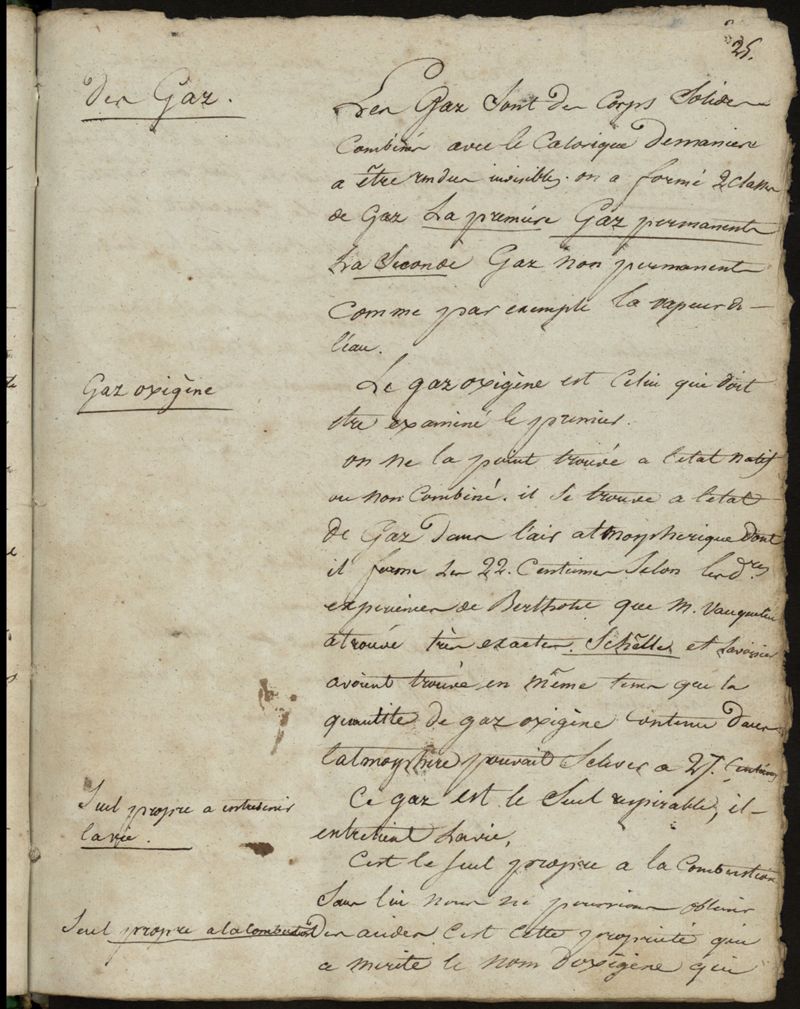 25.
Des Gaz.
Les Gaz Sont des Corps Solides
Combinés avec le Calorique De maniere
a être rendus invisibles. on a formé 2 Classes
de Gaz La première Gaz permanents
La Seconde Gaz non permanents
Comme par exemple la vapeur de
l'eau.
Gaz oxigène
Le gaz oxigène est Celui qui doit
etre examiné le premier.
on ne la point trouvé a l'etat natif
ou non Combiné. il Se trouve a l'etat
de Gaz dans l'air atmospherique dont
il forme Les 22. Centiemes Selon les dres
experiences de Bertholet que M. Vauquelin
a trouvé très exactes. Schêlle et Lavoisier
avoient trouvé en même tems que la
quantité de gaz oxigène Contenu dans
l'atmosphère pouvait S'elever a 27. Centiemes
Seul propre a entretenir
la vie.
Ce gaz est le Seul respirable, il
entretient La vie,
C'est le seul propre a la Combustion
Sans lui nous ne pourrions obtenir
Seul propre a la Combustion
Des acides C'est Cette propriété qui
a merité le nom D'oxigène qui